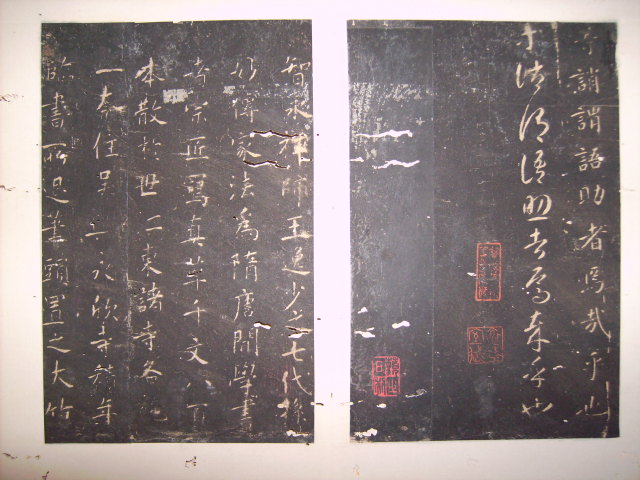 等誚謂語助者焉哉乎也
等誚謂語助者焉哉乎也
智永禅師王逸少之七代孫
妙傳家法為隋唐間學書
者宗匠寫真草千文八百
本散於世江東諸寺各施
一本住吴興永欣寺積年
臨書所退筆頭置之大竹